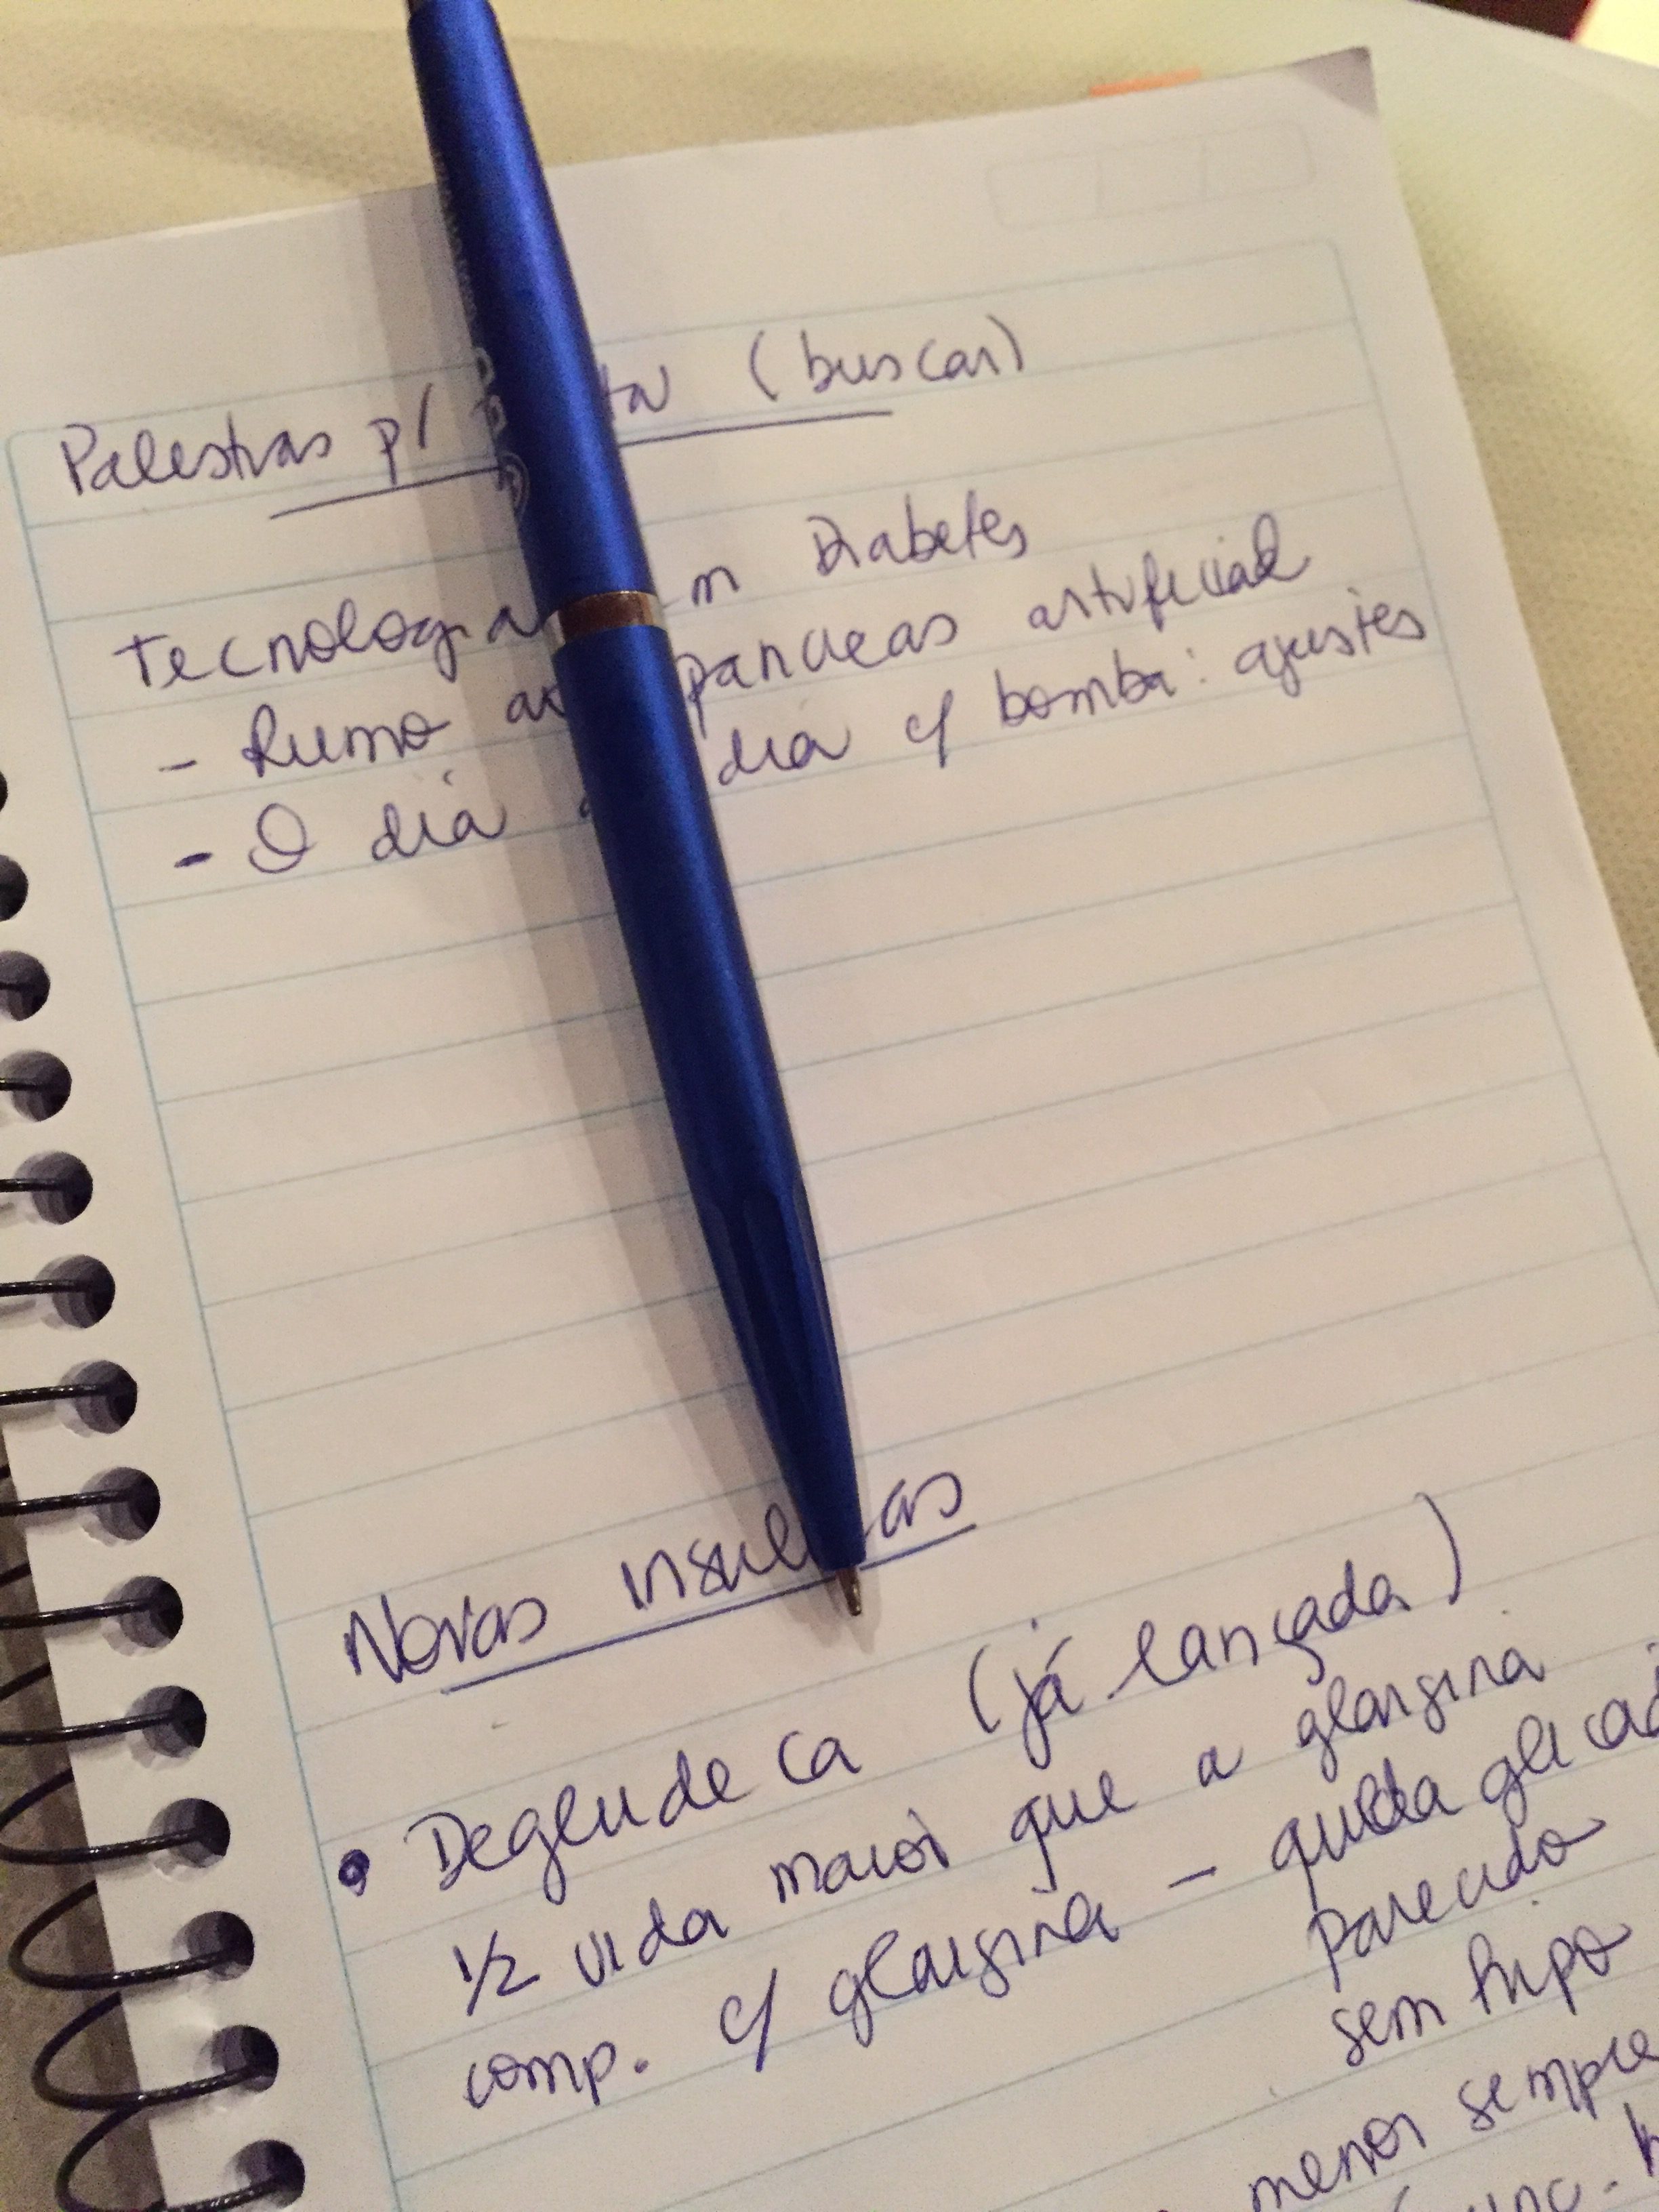 Palestras p/ ta (buscar)
Tecnologia m Diabetes
- Rumo ao pancreas artificial
- O dia dia c/ bomba: ajustes
Novas insulinas
• Degludeca (já lançada)
1/2 vida maior que a glargina
comp. c/ glargina - queda glicad
parecido
sem hipo
menor sempre